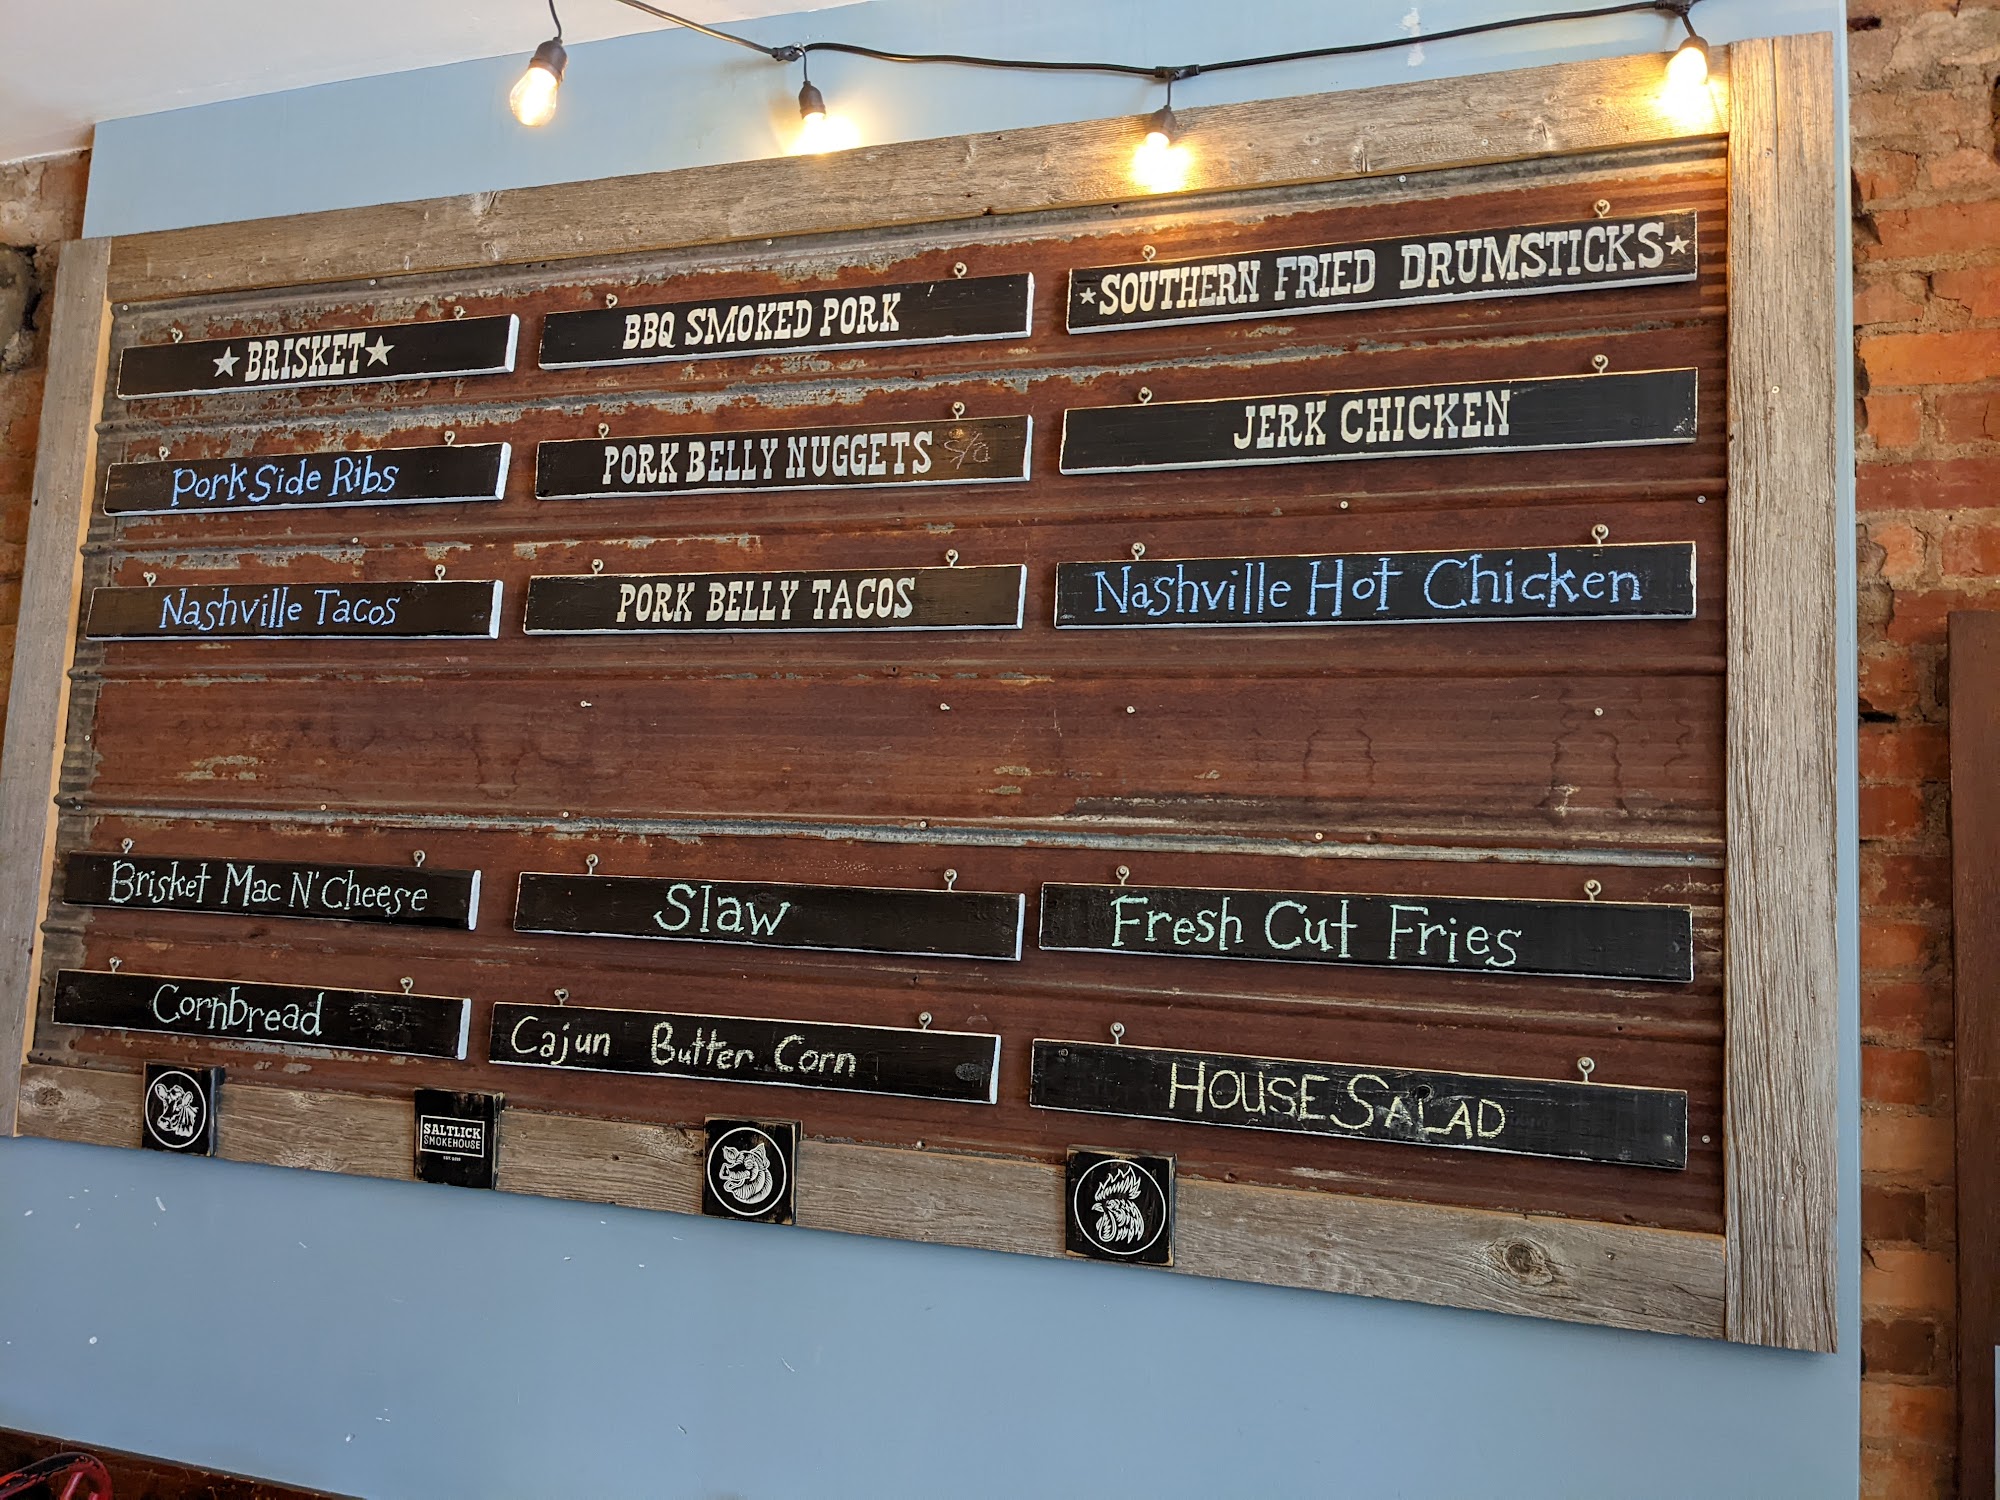 ★BRISKET★
BBQ SMOKED PORK
★SOUTHERN FRIED DRUMSTICKS★
Pork Side Ribs
PORK BELLY NUGGETS S/O
JERK CHICKEN
Nashville Tacos
PORK BELLY TACOS
Nashville Hot Chicken
Brisket Mac N' Cheese
Slaw
Fresh Cut Fries
Cornbread
Cajun Butter Corn
HOUSE SALAD
SALTLICK
SMOKEHOUSE